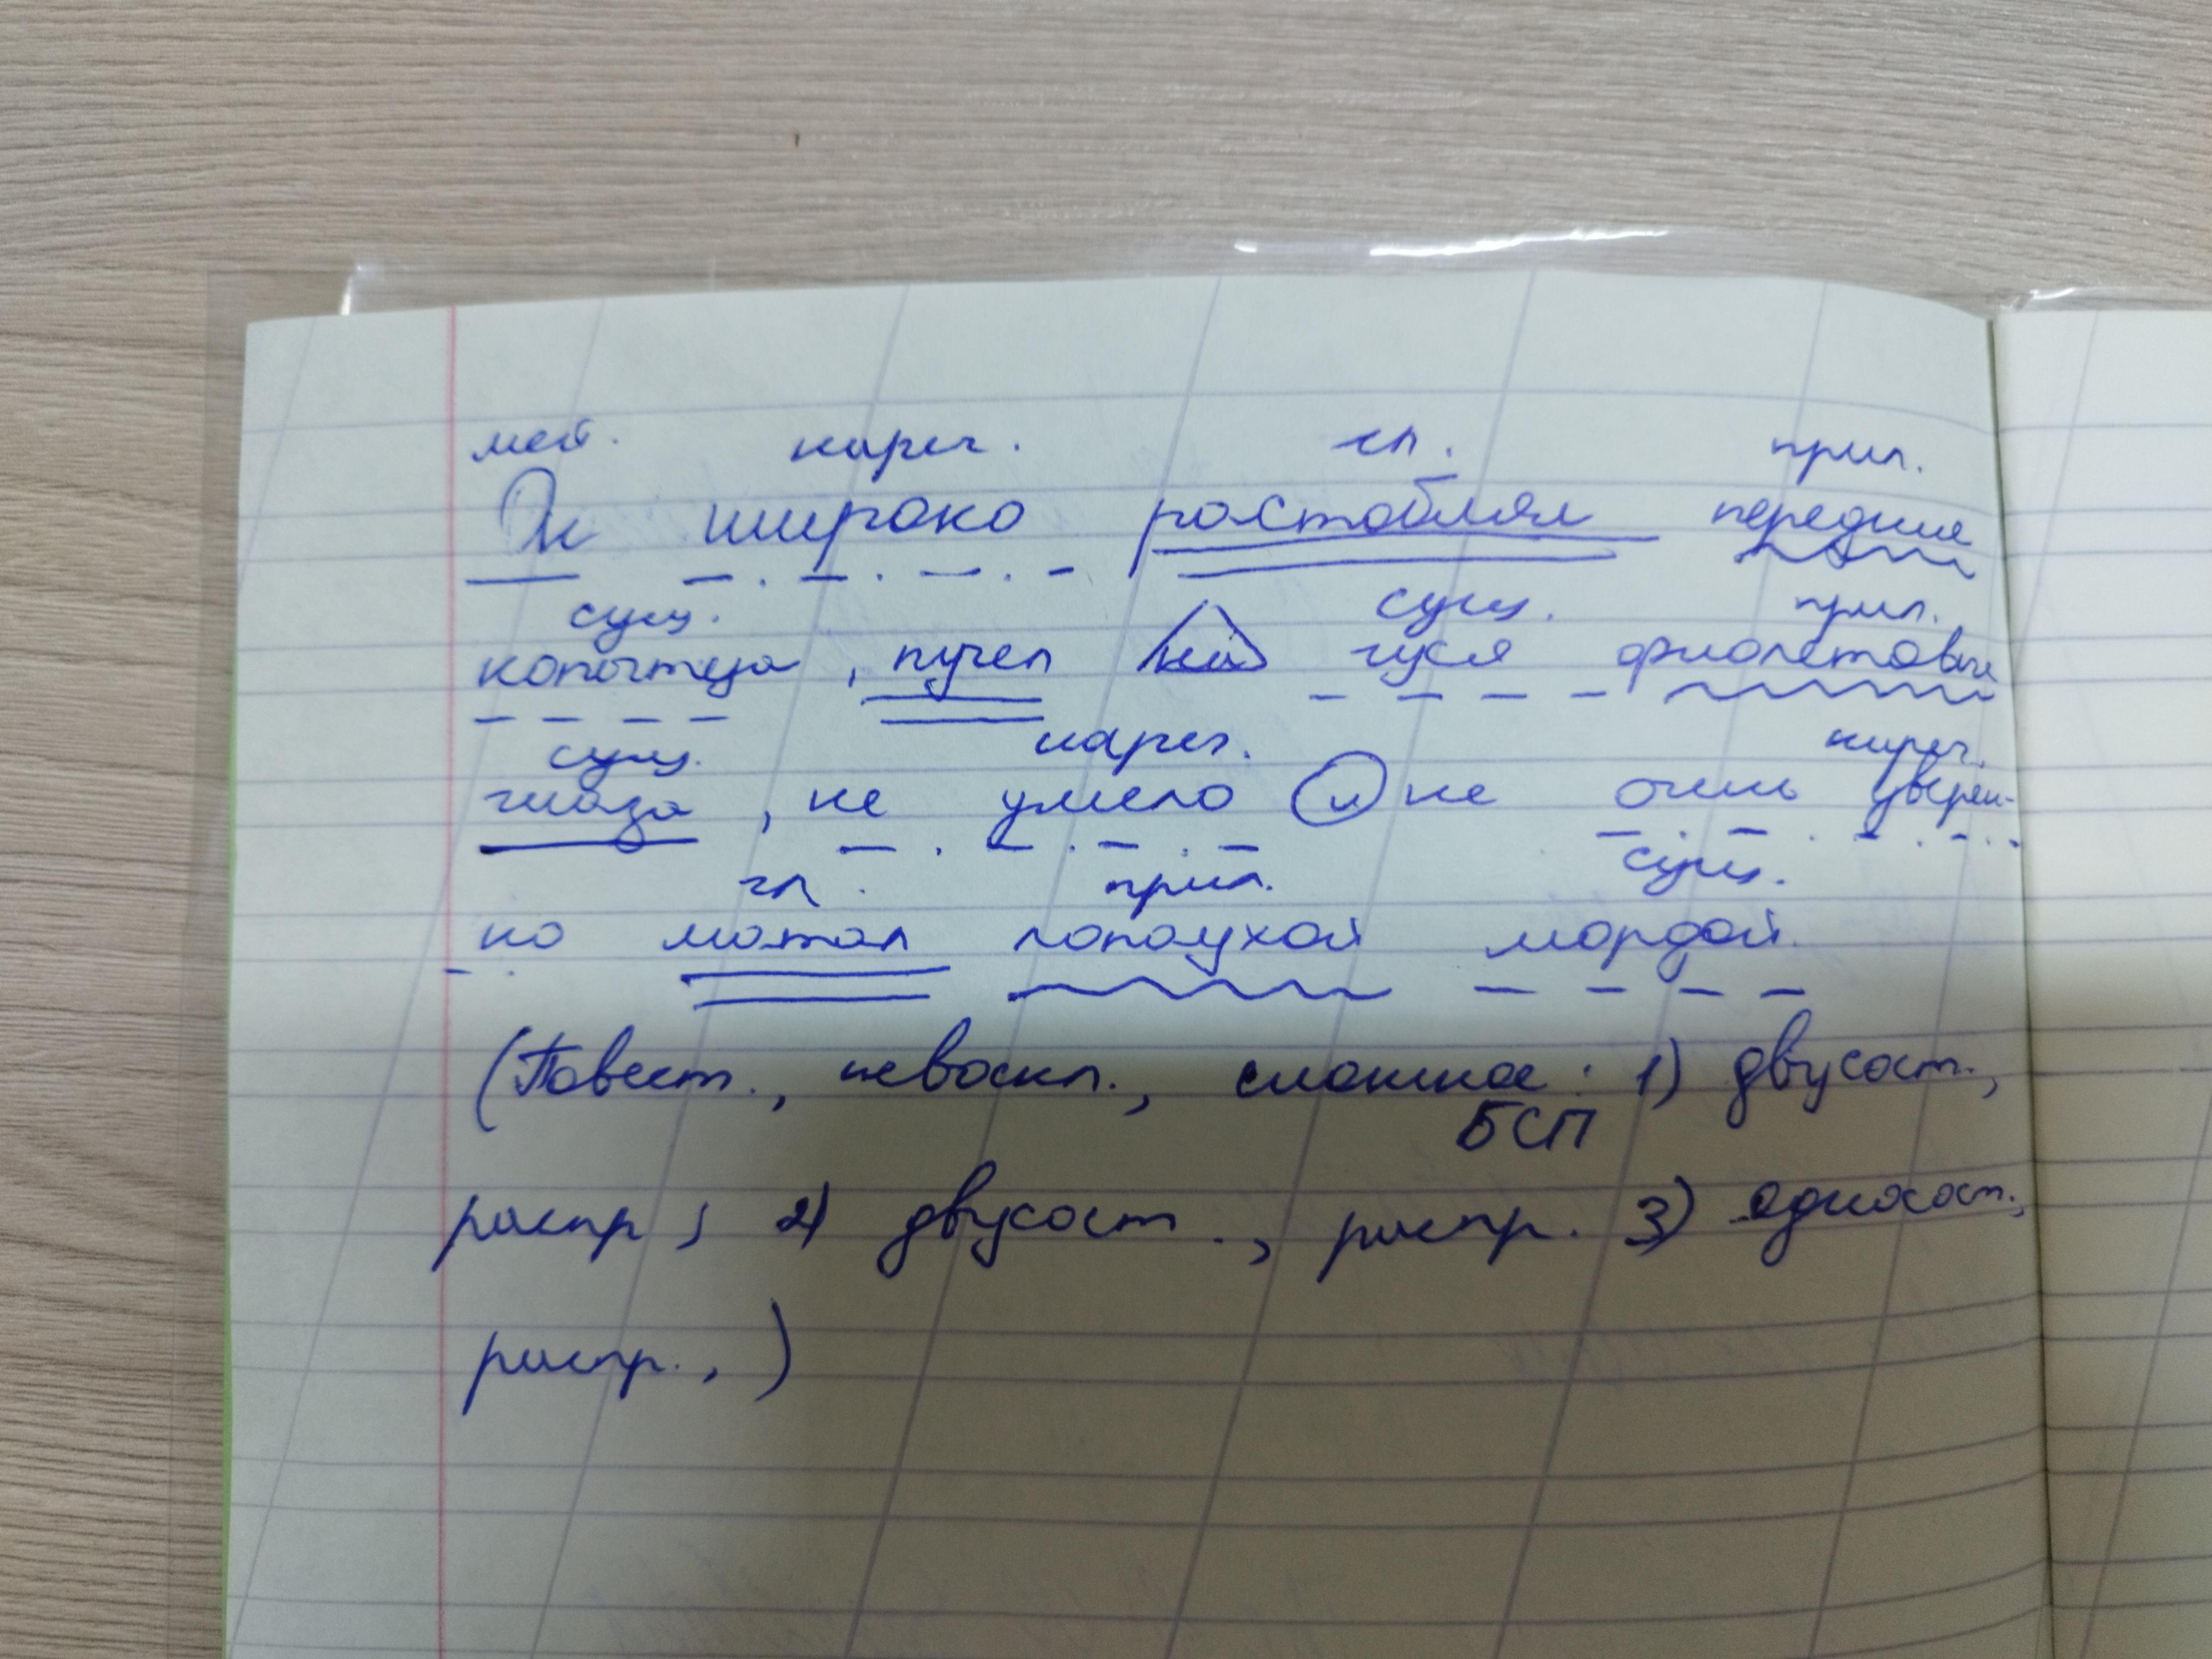 мест. нареч. гл. прил.
Он широко расстовлял передние
сущ. сущ. прил.
копытца, пучел на гуся фиолетовые
сущ. нареч. нареч.
глаза, не умело и не очень уверен-
гл. прил. сущ.
но мотал лопоухой мордой.
(Повест., невоскл., сложное: 1) двусост.,
БСП
распр; 2) двусост., распр. 3) односост.,
распр.,)